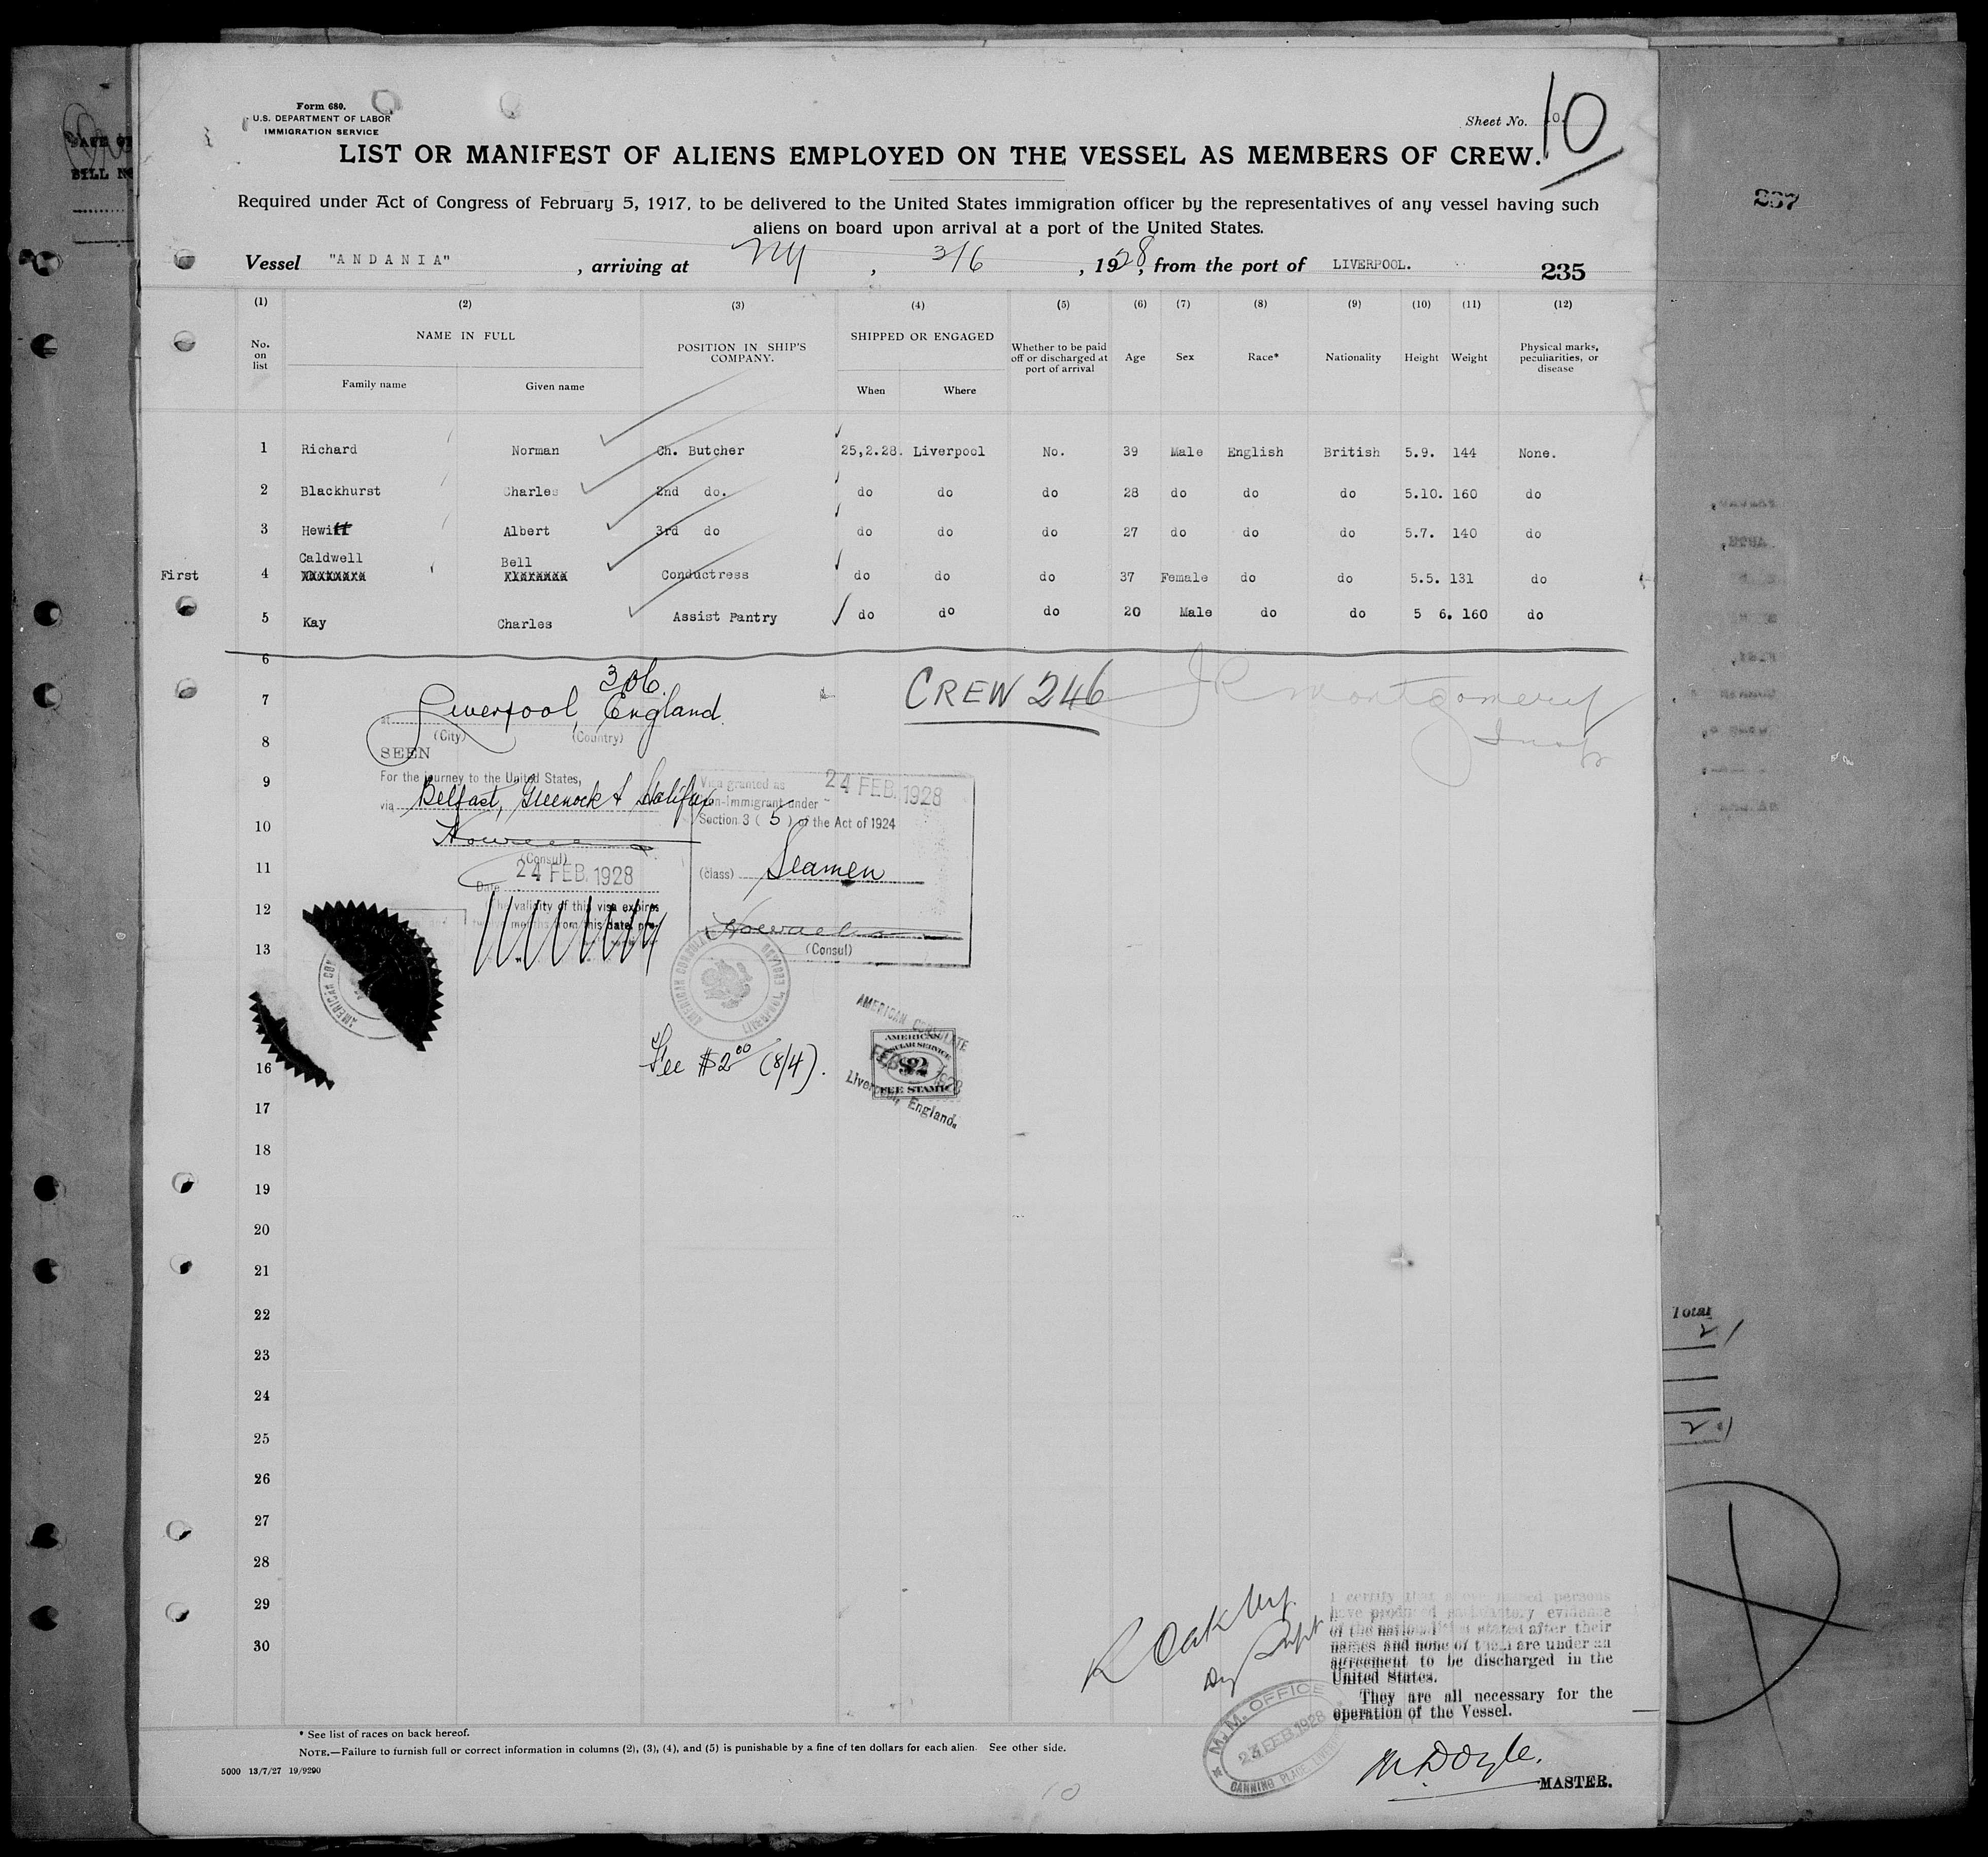 Form 680.
U.S. DEPARTMENT OF LABOR
IMMIGRATION SERVICE
Sheet No. 10
LIST OR MANIFEST OF ALIENS EMPLOYED ON THE VESSEL AS MEMBERS OF CREW.
Required under Act of Congress of February 5, 1917, to be delivered to the United States immigration officer by the representatives of any vessel having such
aliens on board upon arrival at a port of the United States.
Vessel "ANDANIA", arriving at NY, 3/6, 1928, from the port of LIVERPOOL. 235
237
(1) (2) (3) (4) (5) (6) (7) (8) (9) (10) (11) (12)
No. on list NAME IN FULL Family name Given name POSITION IN SHIP'S COMPANY. SHIPPED OR ENGAGED When Where Whether to be paid off or discharged at port of arrival Age Sex Race* Nationality Height Weight Physical marks, peculiarities, or disease
1 Richard Norman Ch. Butcher 25,2.28. Liverpool No. 39 Male English British 5.9. 144 None.
2 Blackhurst Charles 2nd do. do do do 28 do do do 5.10. 160 do
3 Hewitt Albert 3rd do do do do 27 do do do 5.7. 140 do
Caldwell Bell
First 4 Conductress do do do 37 Female do do 5.5. 131 do
5 Kay Charles Assist Pantry do do do 20 Male do do 5 6. 160 do
6
306
7 at Liverpool, England. CREW 246 JR Montgomery
(City) (Country)
8 Insp
SEEN
For the journey to the United States,
9 via Belfast, Greenock & Halifax
Visa granted as 24 FEB. 1928
Non-Immigrant under
Section 3 (5) of the Act of 1924
10
(Consul)
11 (class) Seamen
Date 24 FEB. 1928
The validity of this visa expires
12 twelve months from this date, pro-
13 (Consul)
AMERICAN CONSULATE
LIVERPOOL, ENGLAND
AMERICAN CON
AMERICAN CONSULATE
FEB 1928
Liverpool, England.
AMERICAN
CONSULAR SERVICE
$2
FEE STAMP
16 Fee $2.00 (8/4).
17
18
19
20
21
22
23
24
25
26
27
28
29
30
Total
R Oakley
Dy Supt
I certify that above named persons
have produced satisfactory evidence
of the nationalities stated after their
names and none of them are under an
agreement to be discharged in the
United States.
They are all necessary for the
operation of the Vessel.
M. M. OFFICE
23 FEB. 1928
CANNING PLACE, LIVERPOOL
M Doyle.
MASTER.
* See list of races on back hereof.
NOTE.—Failure to furnish full or correct information in columns (2), (3), (4), and (5) is punishable by a fine of ten dollars for each alien. See other side.
5000 13/7/27 19/9290
10